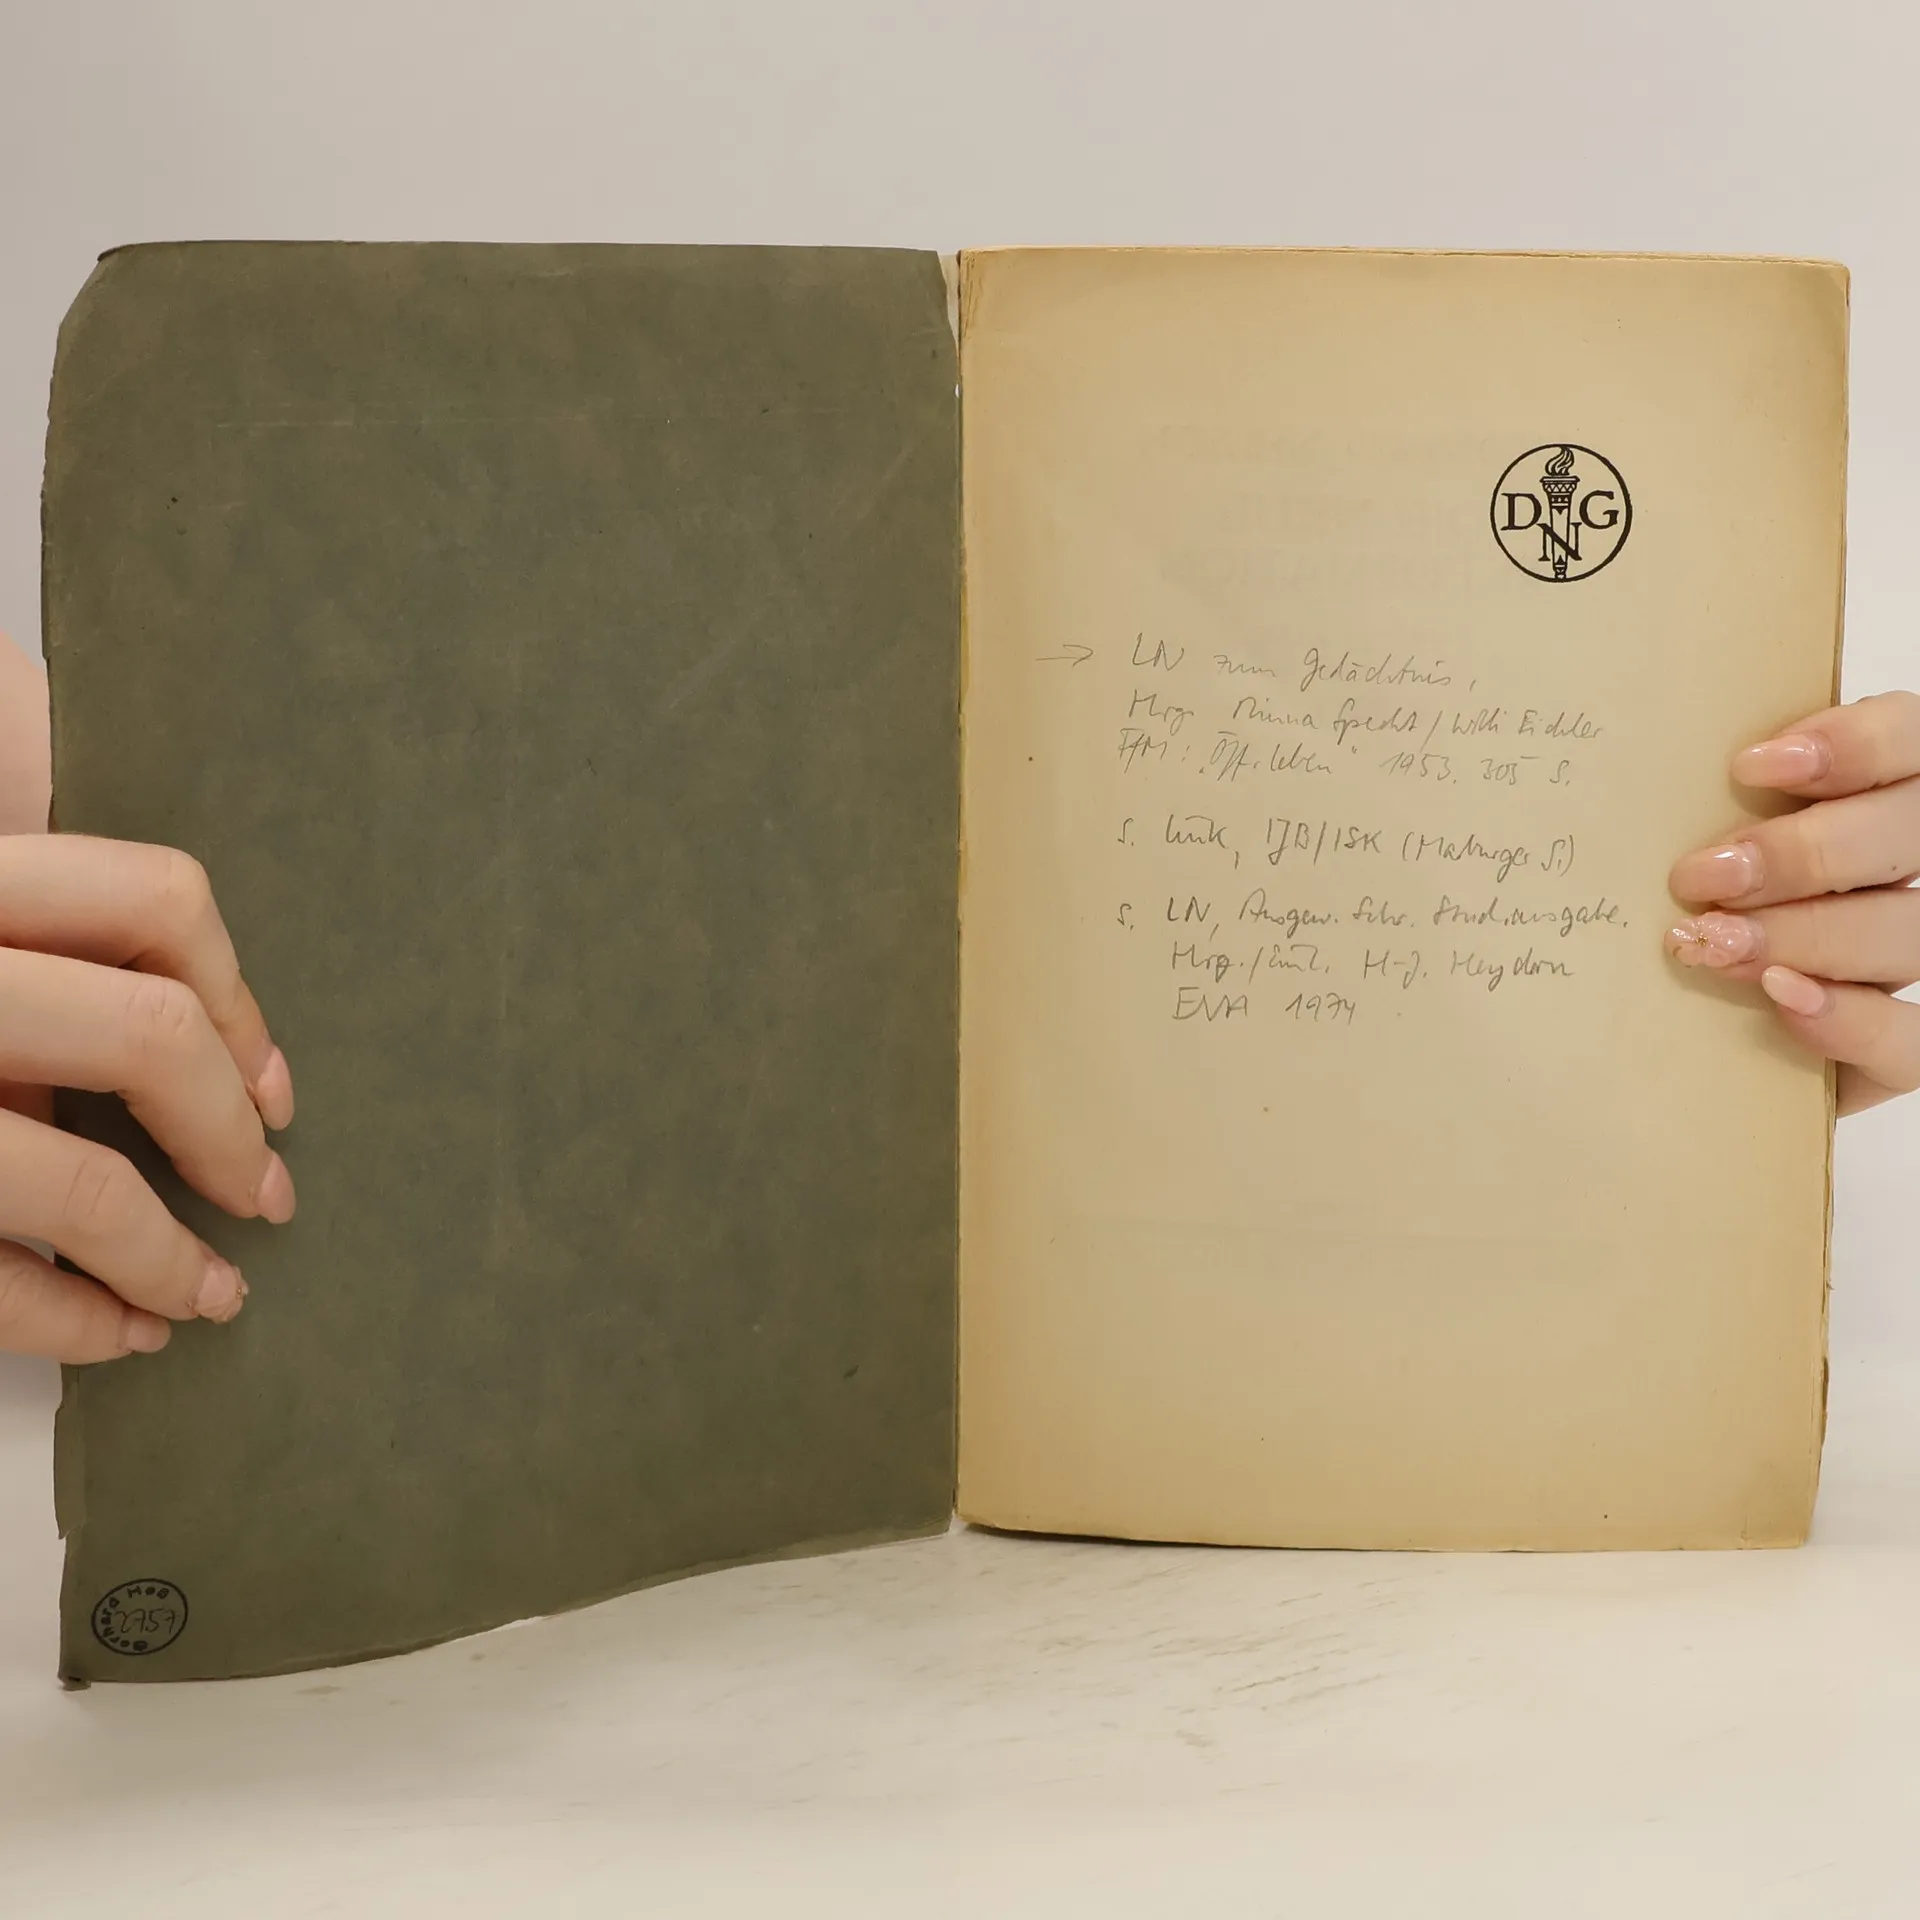 D N G
→ LN zum Gedächtnis,
Hrg. Minna Specht / Willi Eichler
FfM: „Öff. Leben" 1953. 305 S.
s. Link, IJB/ISK (Marburger S.)
s. LN, Ausgew. Schr. Studienausgabe.
Hrg./Einl. H-J. Heydorn
EVA 1974
Gerhard
2757